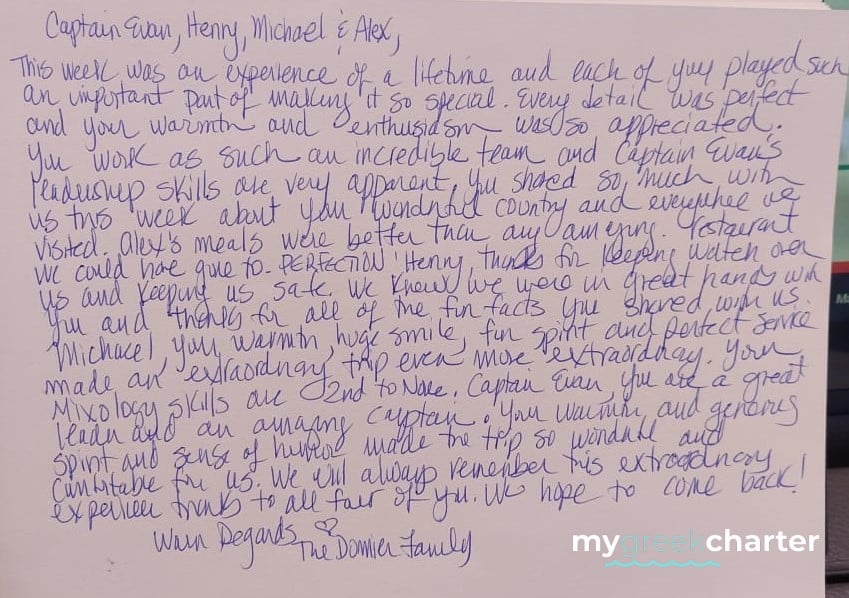 Captain Evan, Henry, Michael & Alex,
This week was an experience of a lifetime and each of you played such
an important part of making it so special. Every detail was perfect
and your warmth and enthusiasm was so appreciated.
You work as such an incredible team and Captain Evan's
leadership skills are very apparent. You shared so much with
us this week about your wonderful country and everywhere we
visited. Alex's meals were better than any amazing restaurant
we could have gone to. PERFECTION! Henry, thanks for keeping watch over
us and keeping us safe. We knew we were in great hands with
you and thanks for all of the fun facts you shared with us.
Michael, your warmth, huge smile, fun spirit and perfect service
made an extraordinary trip even more extraordinary. Your
Mixology skills are 2nd to None. Captain Evan, you are a great
leader and an amazing captain. Your warmth and generous
spirit and sense of humor made the trip so wonderful and
comfortable for us. We will always remember this extraordinary
experience thanks to all four of you. We hope to come back!
Warm Regards ♡
The Domier Family
mygreekcharter